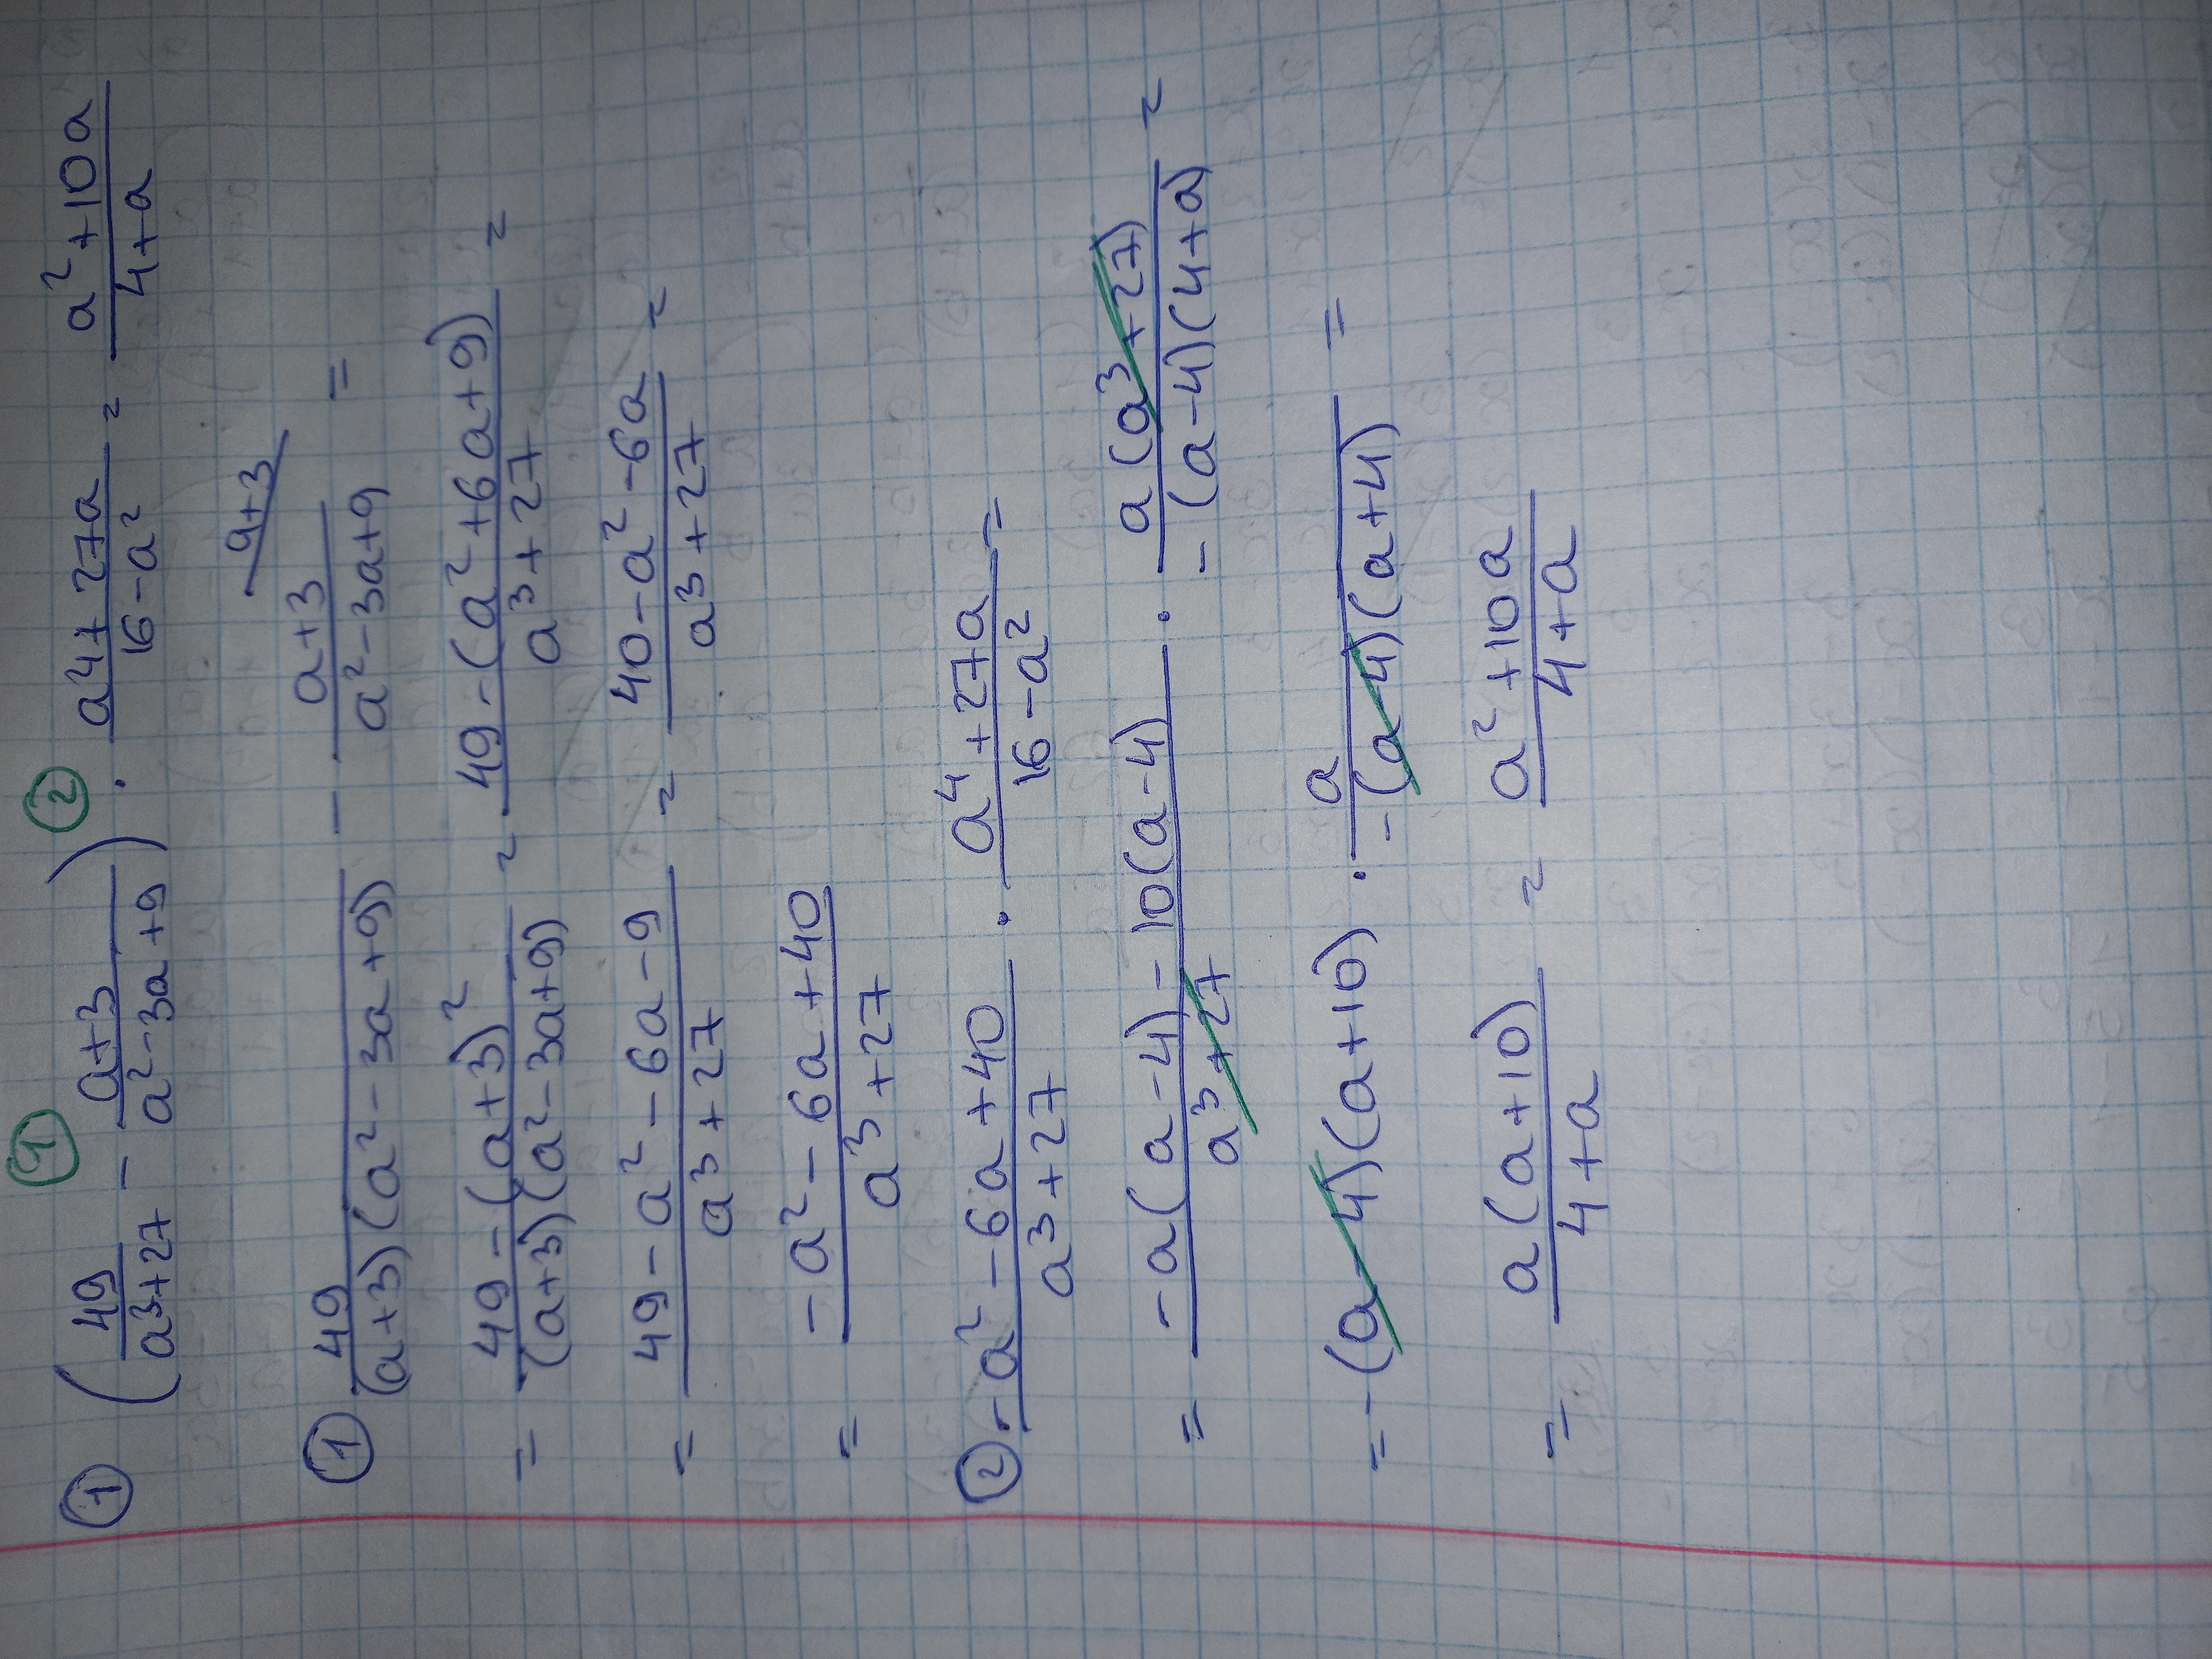 ① (49/(a³+27) - (a+3)/(a²-3a+9)) · (a⁴+27a)/(16-a²) = (a²+10a)/(4+a)
① ②
a+3
① 49/((a+3)(a²-3a+9)) - (a+3)/(a²-3a+9) =
= (49-(a+3)²)/((a+3)(a²-3a+9)) = (49-(a²+6a+9))/(a³+27) =
= (49-a²-6a-9)/(a³+27) = (40-a²-6a)/(a³+27) =
= (-a²-6a+40)/(a³+27)
② (-a²-6a+40)/(a³+27) · (a⁴+27a)/(16-a²) =
= (-a(a-4)-10(a-4))/(a³+27) · (a(a³+27))/(-(a-4)(4+a)) =
= -(a-4)(a+10) · a/(-(a-4)(a+4)) =
= (a(a+10))/(4+a) = (a²+10a)/(4+a)